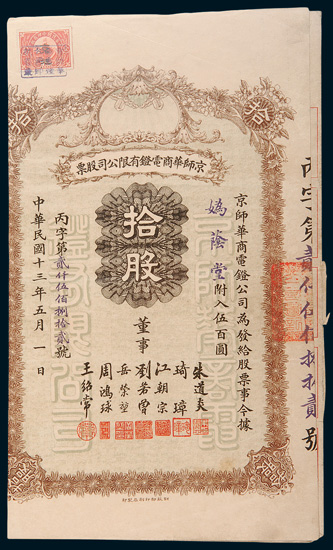 京師華商電燈有限公司股票
拾
拾
拾股
京師華商電鐙公司為發給股票事今據
媯蔭堂附入伍百圓
董事
朱道炎
琦璋
江朝宗
劉芳曾
岳榮堃
周鴻球
王紹常
丙字第貳仟伍佰捌拾貳號
中華民國十三年五月一日
丙字第貳仟伍佰捌拾貳號